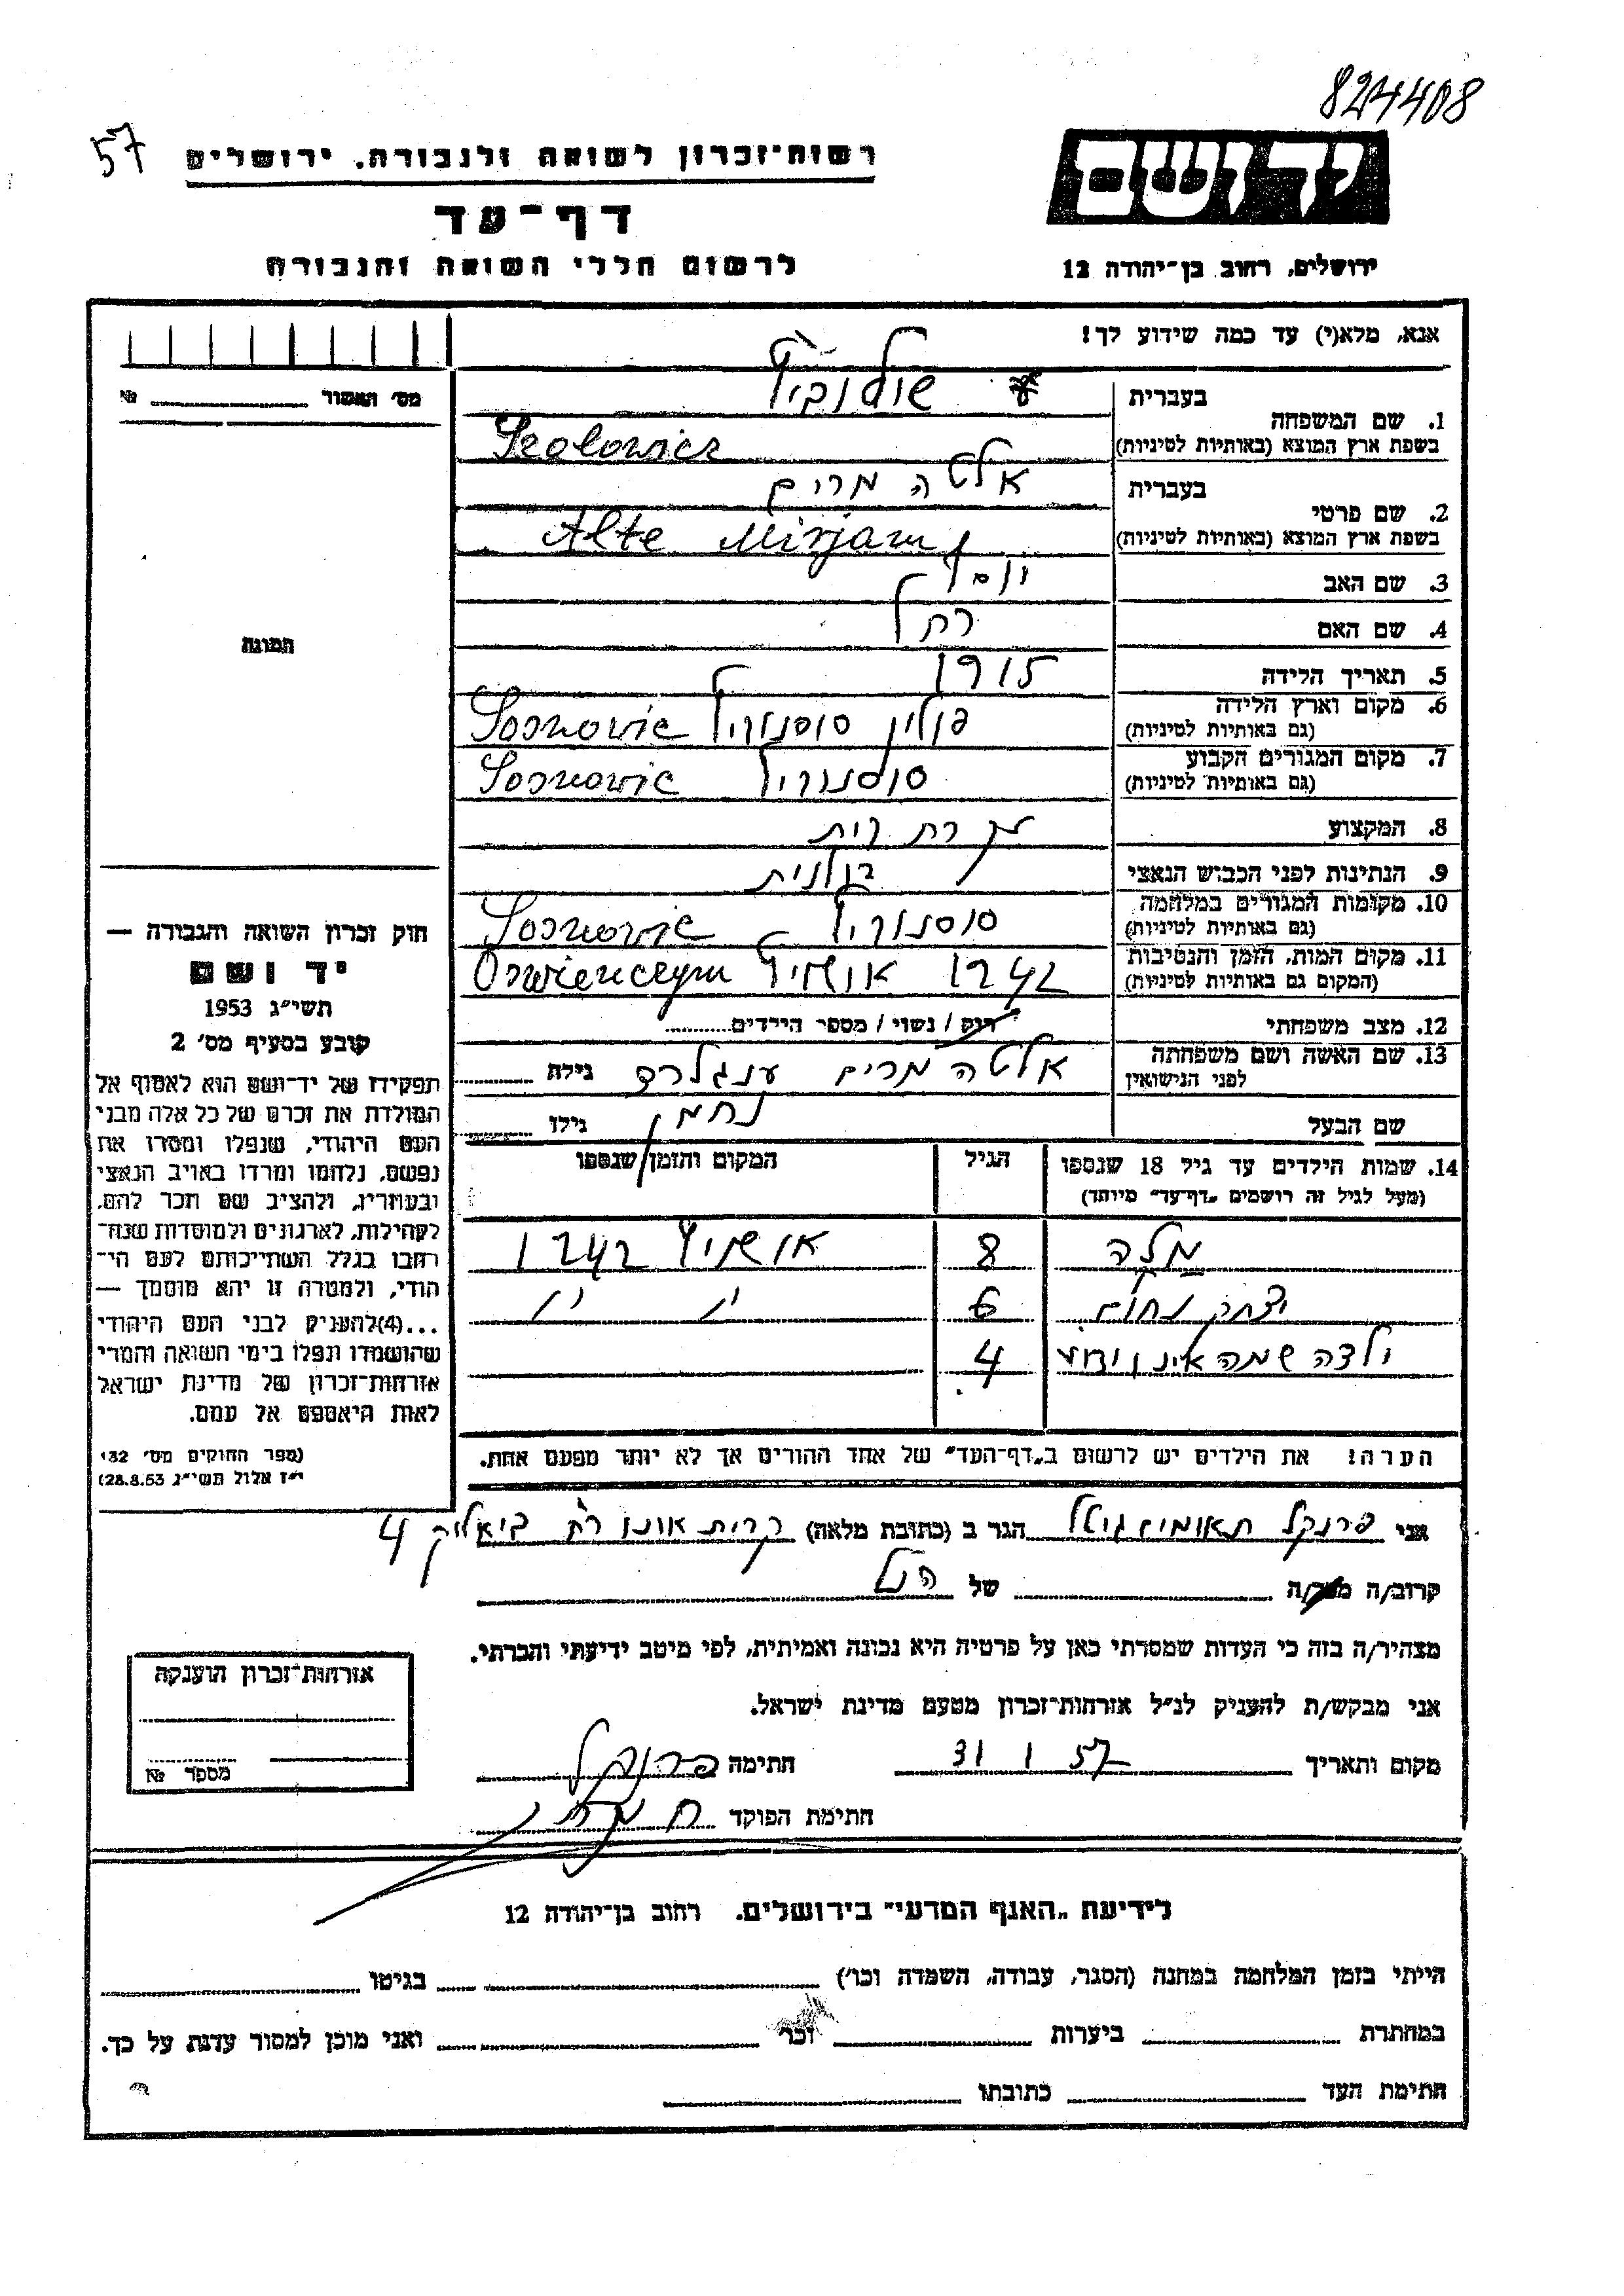 824408
57
רשות-זכרון לשואה ולגבורה. ירושלים
יד ושם
דף-עד
לרשום חללי השואה והגבורה
ירושלים, רחוב בן-יהודה 12
אנא, מלא(י) עד כמה שידוע לך!
מס׳ האשור № 
התמונה
חוק זכרון השואה והגבורה —
יד ושם
תשי״ג 1953
קובע בסעיף מס׳ 2
תפקידו של יד-ושם הוא לאסוף אל
המולדת את זכרם של כל אלה מבני
העם היהודי, שנפלו ומסרו את
נפשם, נלחמו ומרדו באויב הנאצי
ובעוזריו, ולהציב שם וזכר להם,
לקהילות, לארגונים ולמוסדות שנח-
רבו בגלל השתייכותם לעם הי-
הודי, ולמטרה זו יהא מוסמך —
...(4)להעניק לבני העם היהודי
שהושמדו ונפלו בימי השואה והמרי
אזרחות-זכרון של מדינת ישראל
לאות היאספם אל עמם.
(ספר החוקים מס׳ 132
י״ז אלול תשי״ג 28.8.53)
1. שם המשפחה בעברית שולוביץ
בשפת ארץ המוצא (באותיות לטיניות) Szolowicz
2. שם פרטי בעברית אלטה מרים
בשפת ארץ המוצא (באותיות לטיניות) Alte Mirjam
3. שם האב יוסף
4. שם האם רחל
5. תאריך הלידה 1915
6. מקום וארץ הלידה (גם באותיות לטיניות) פולין סוסנוביץ Sosnovic
7. מקום המגורים הקבוע (גם באותיות לטיניות) סוסנוביץ Sosnovic
8. המקצוע עקרת בית
9. הנתינות לפני הכבוש הנאצי פולנית
10. מקומות המגורים במלחמה (גם באותיות לטיניות) סוסנוביץ Sosnovic
11. מקום המות, הזמן והנסיבות (המקום גם באותיות לטיניות) 1942 אושויץ Oswienczym
12. מצב משפחתי רווק / נשוי / מספר הילדים
13. שם האשה ושם משפחתה לפני הנישואין אלטה מרים ענגלרד גילה
שם הבעל נחמן גילו
14. שמות הילדים עד גיל 18 שנספו (מעל לגיל זה רושמים „דף-עד״ מיוחד) הגיל המקום והזמן שנספו
מלה 8 אושויץ 1942
יצחק נחום 6 ״ ״
ילדה שמה אינו ידוע 4
הערה! את הילדים יש לרשום ב„דף-העד״ של אחד ההורים אך לא יותר מפעם אחת.
אני פרנקל תאומים גיטל הגר ב (כתובת מלאה) קרית אונו רח׳ ביאליק 4
קרוב/ה מכר/ה של הנ״ל
מצהיר/ה בזה כי העדות שמסרתי כאן על פרטיה היא נכונה ואמיתית, לפי מיטב ידיעתי והכרתי.
אני מבקש/ת להעניק לנ״ל אזרחות-זכרון מטעם מדינת ישראל.
מקום ותאריך 31 1 57 חתימה פרנקל
חתימת הפוקד
אזרחות-זכרון הוענקה
מספר №
לידיעת „האגף המדעי״ בירושלים. רחוב בן-יהודה 12
הייתי בזמן המלחמה במחנה (הסגר, עבודה, השמדה וכו׳) בגיטו
במחתרת ביערות וכו׳ ואני מוכן למסור עדות על כך.
חתימת העד כתובתו